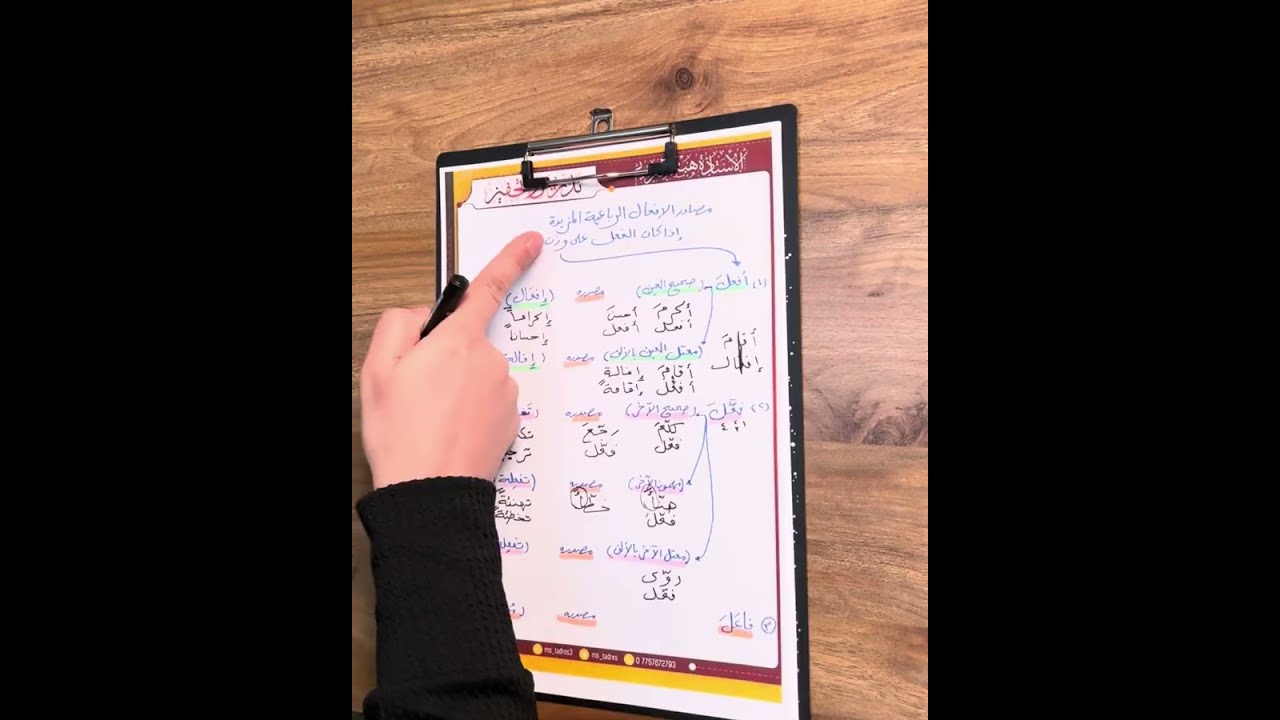 الأستاذة هبة
مصادر الافعال الرباعية المزيدة
إذا كان الفعل على وزن
(١) أفعلَ (صحيح العين) مصدره (إفعَال)
أكرمَ أحسنَ إكراماً
أفعلَ أفعل إحساناً
أقامَ
إفعال
(معتل العين بالألف) مصدره (إفالة
أقامَ إفالة
أفعْل إقامةً
(٢) فعَّلَ (صحيح الآخر) مصدره
١ ٢ ٢ ٤
فعّل فعّل
(مهموز الآخر) مصدره (تفعِلة
هنّأ خطّأ تهنئةً
فعّلَ تخطئةً
(معتل الآخر بالألف) مصدره
روّى
فعّل
٣ فاعَلَ مصدره
ms_tadres3 ms_tadres 0 7757672793